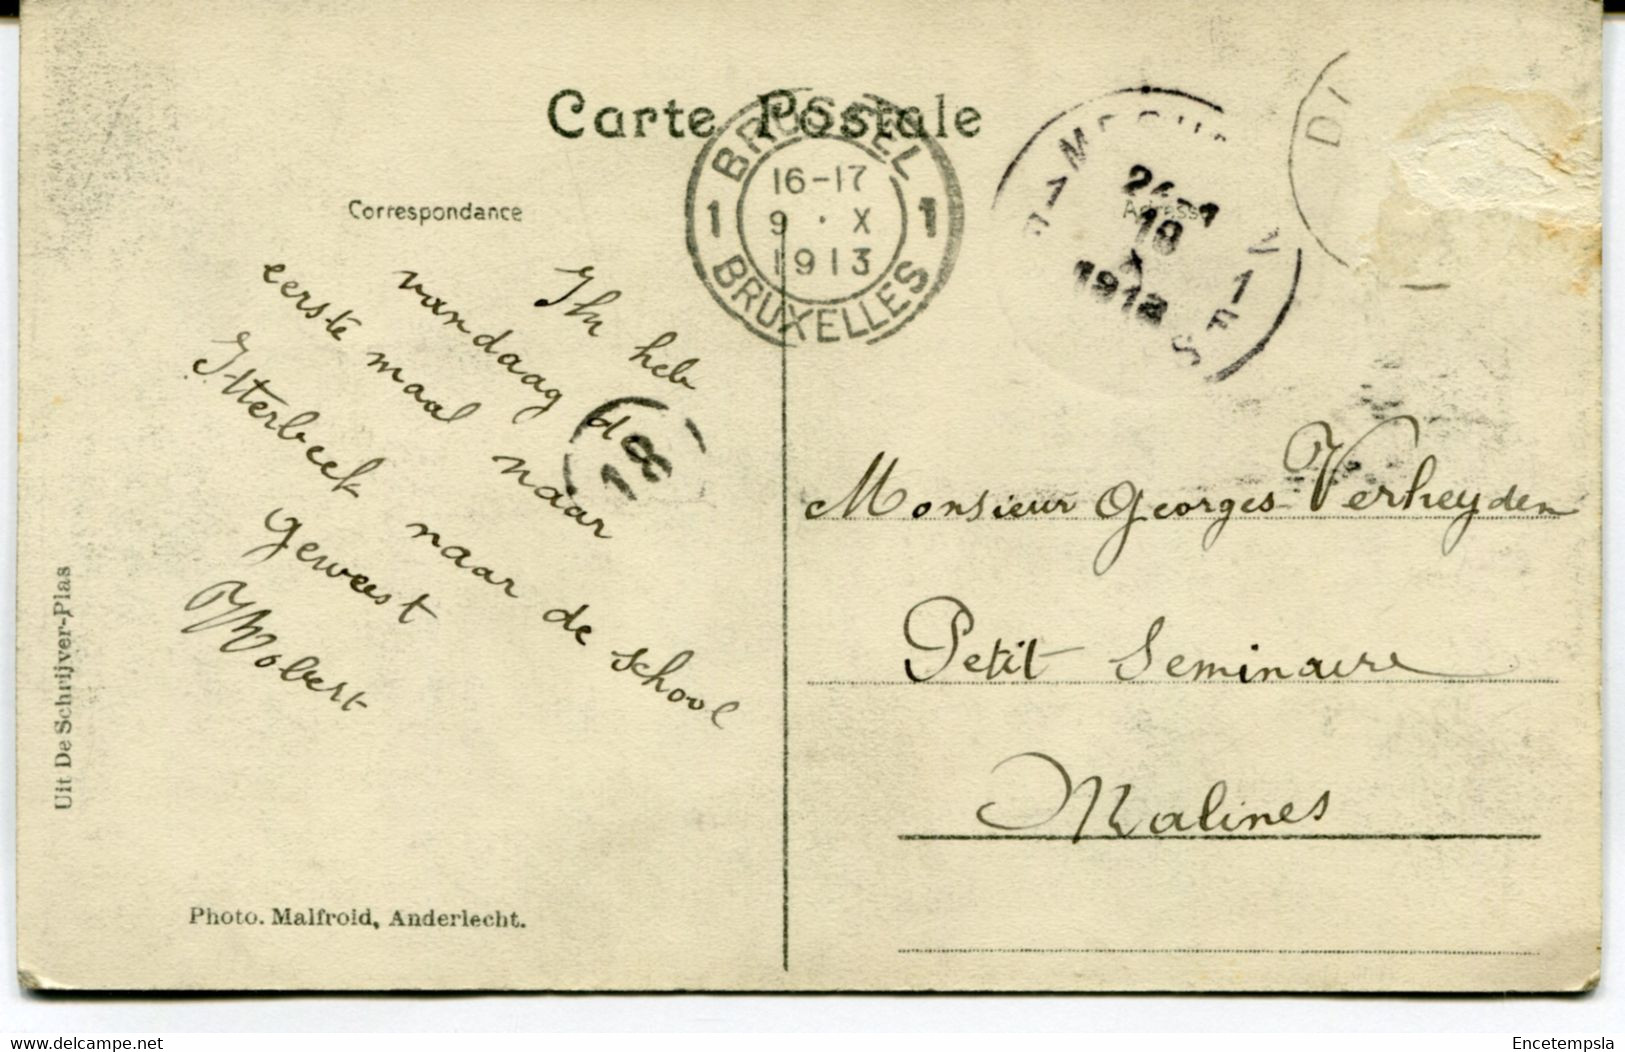 Carte Postale
Correspondance
Adresse
BRUSSEL
1 16-17 1
9 · X
1913
BRUXELLES
1
18
X
1913
1
18
Ik heb
vandaag de
eerste maal naar
Itterbeek naar de school
geweest
Monsieur Georges Verheyden
Petit Seminaire
Malines
Uit De Schrijver-Plas
Photo. Malfroid, Anderlecht.
delcampe.net
Encetempsla